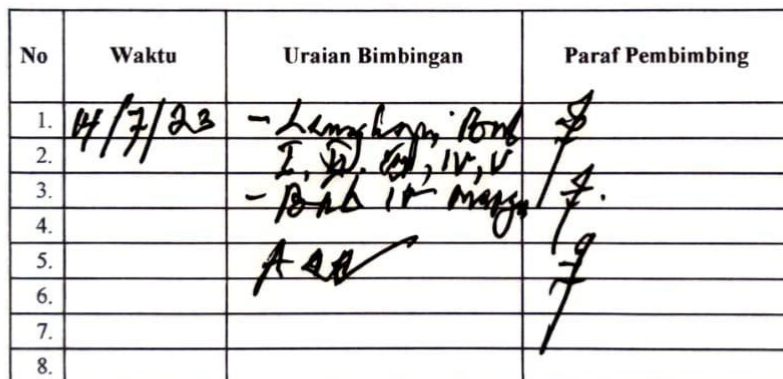 No Waktu Uraian Bimbingan Paraf Pembimbing
1. 14/7/23 - Lengkapi Bab
2. I, II, III, IV, V
3. - Bab IV
4.
5.
6.
7.
8.